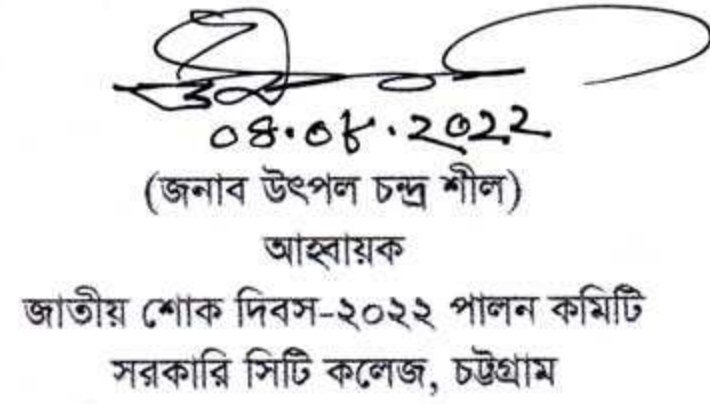 ০৪.০৮.২০২২
(জনাব উৎপল চন্দ্র শীল)
আহ্বায়ক
জাতীয় শোক দিবস-২০২২ পালন কমিটি
সরকারি সিটি কলেজ, চট্টগ্রাম